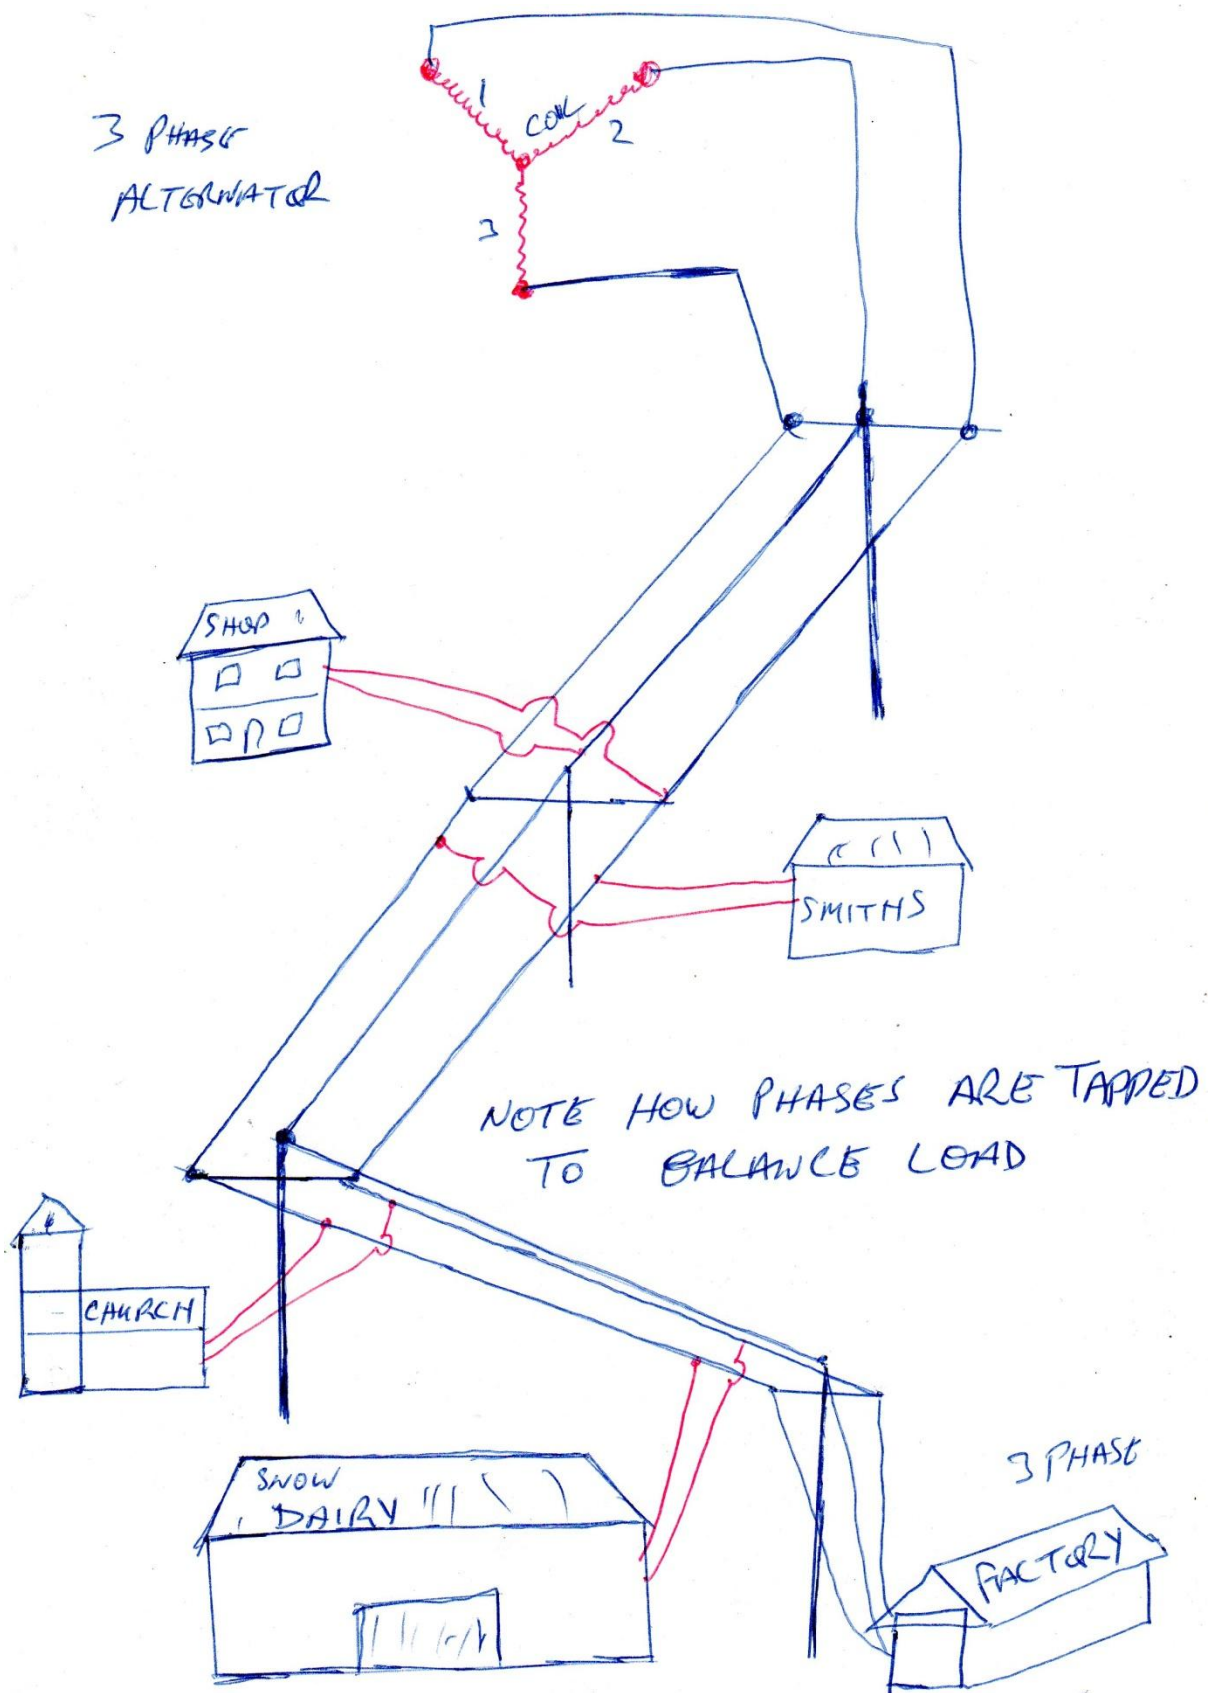 3 PHASE
ALTERNATOR
1
COIL
2
3
SHOP
SMITHS
NOTE HOW PHASES ARE TAPPED
TO BALANCE LOAD
CHURCH
3 PHASE
SNOW
DAIRY
FACTORY